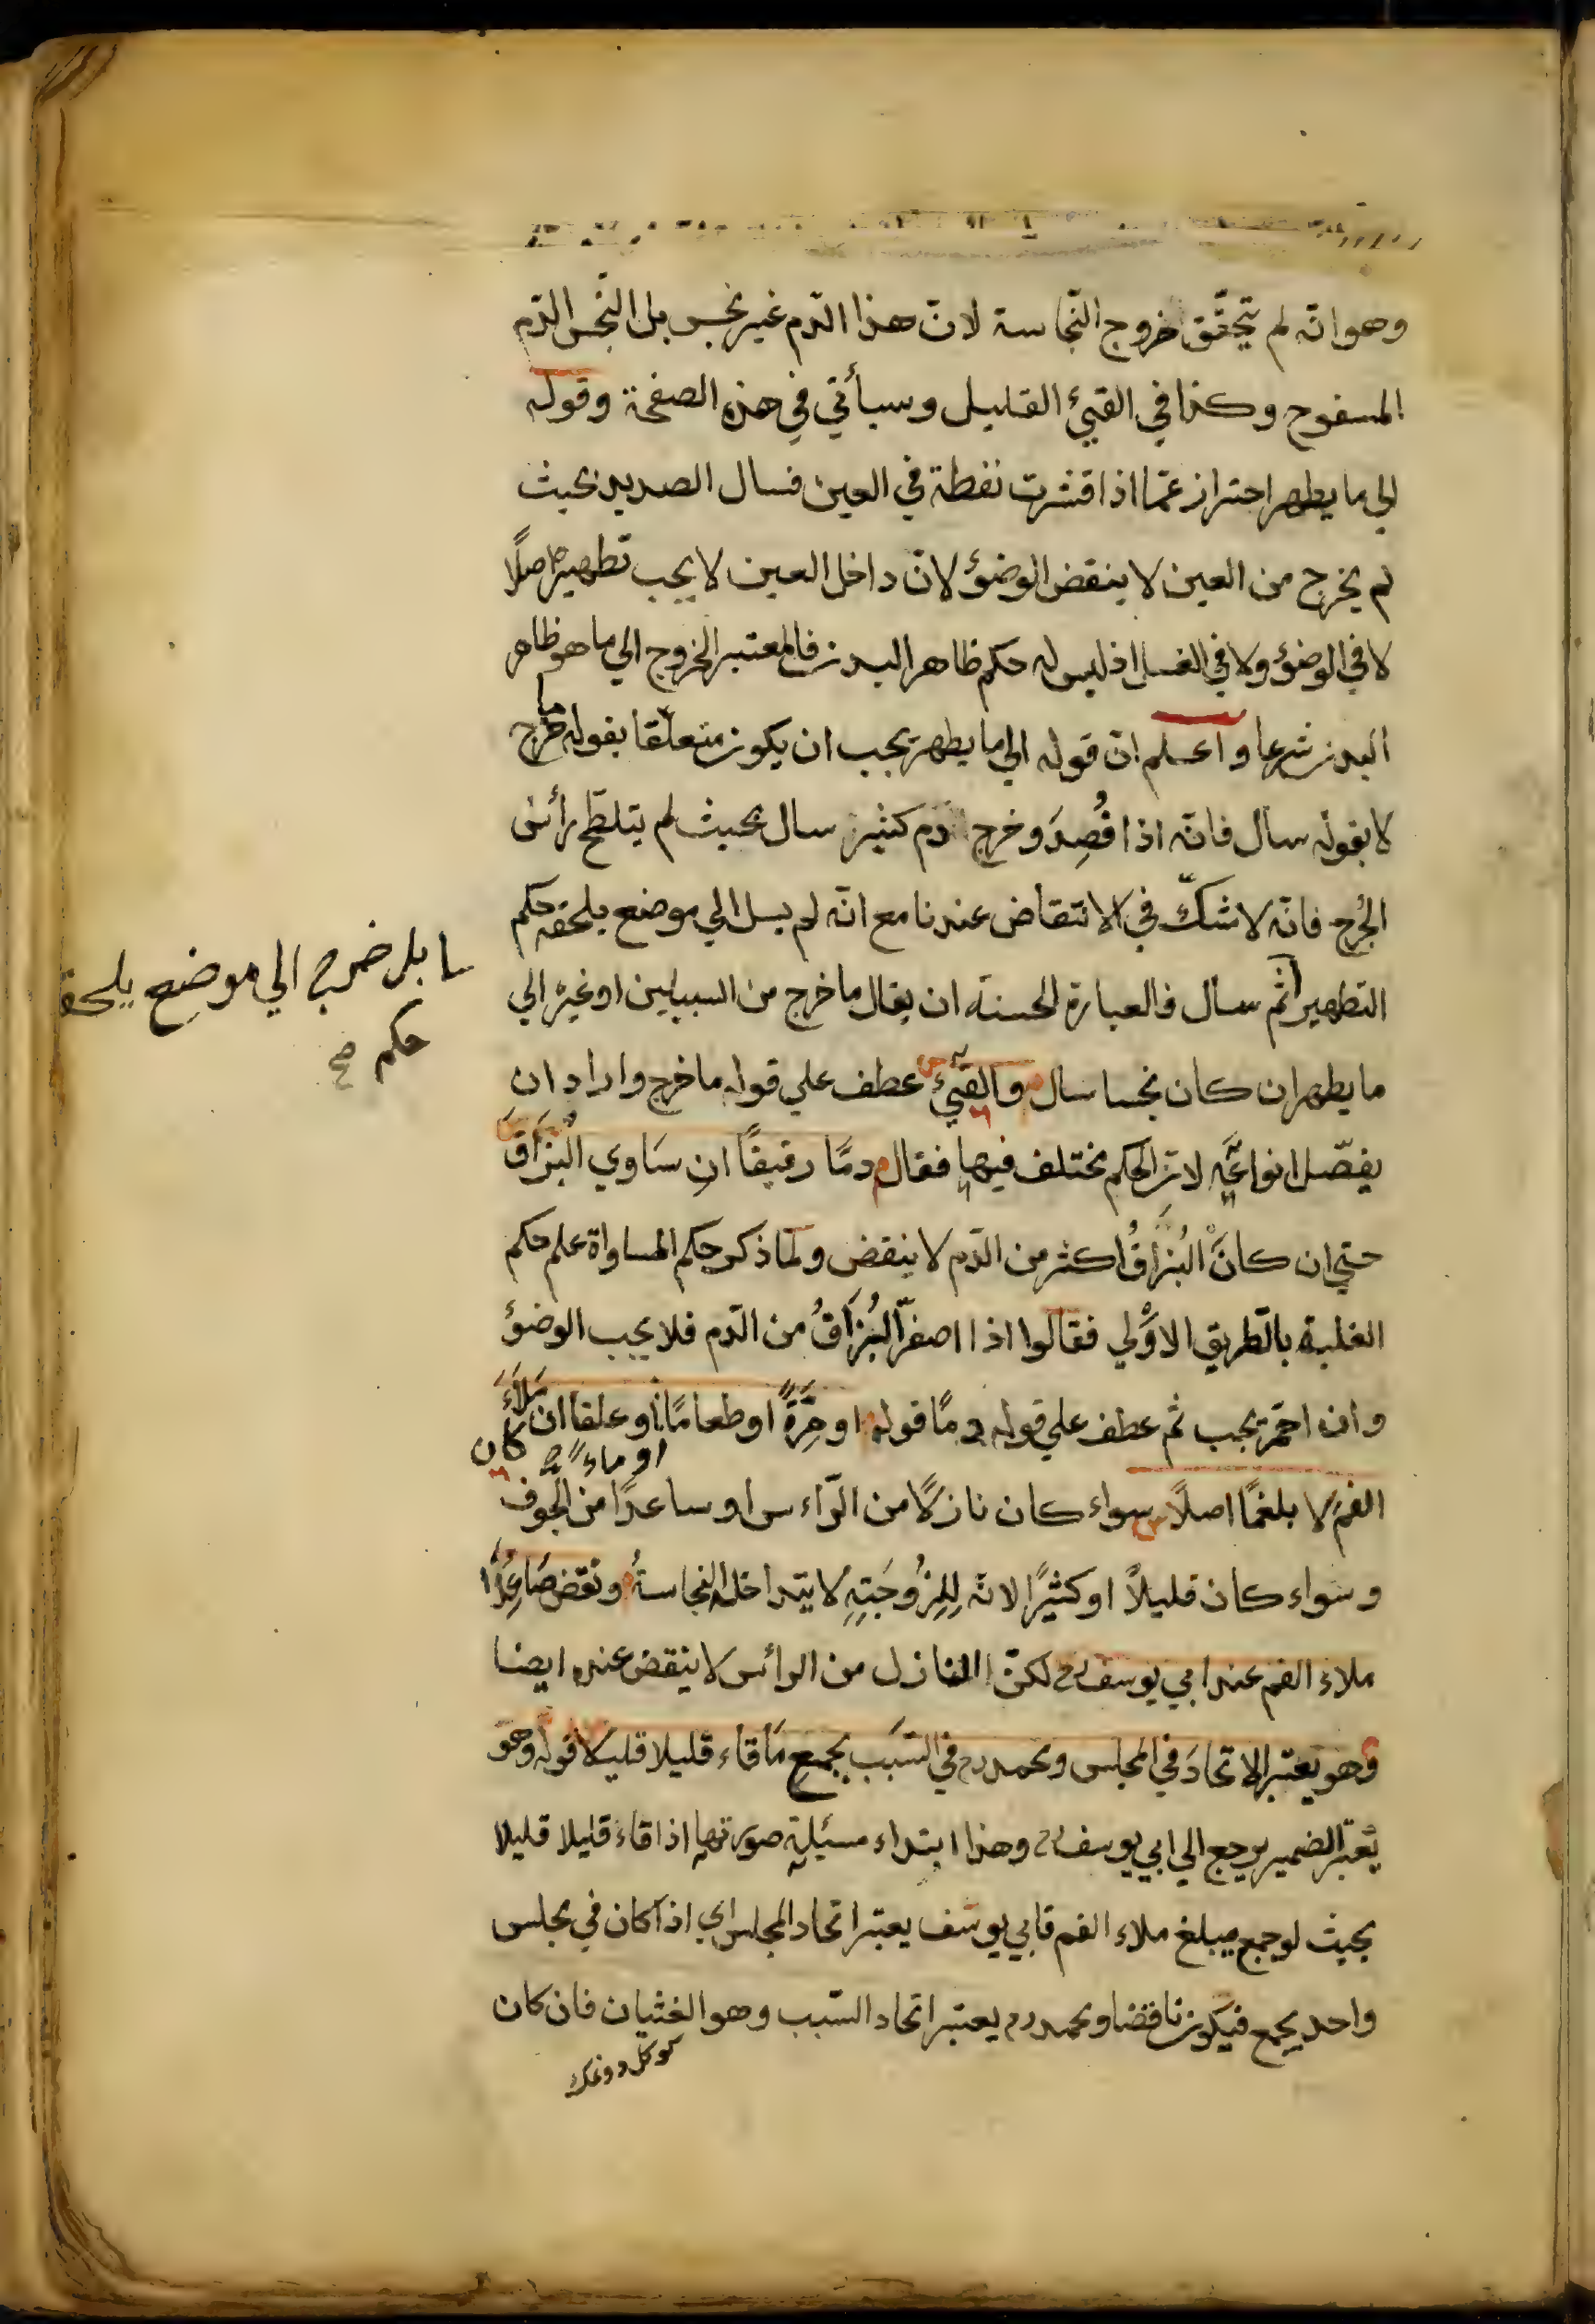 وهو انّه لم يتحقّق خروج النّجاسة لانّ هذا الدّم غير نجس بل النّجس الدّم
المسفوح وكذا في القيئ القليل وسيأتي في هذه الصفحة وقوله
الي ما يطهر احتراز عمّا اذا قشرت نفطة في العين فسال الصديد بحيث
لم يخرج من العين لا ينقض الوضوٴ لانّ داخل العين لا يجب تطهيره اصلًا
لا في الوضوٴ ولا في الغسل اذ ليس له حكم ظاهر البدن فالمعتبر الخروج الي ما هو ظاهر
البدن شرعا واعلم انّ قوله الي ما يطهر يجب ان يكون متعلّقا بقوله ما خرج
لا بقوله سال فانّه اذا فُصِدَ وخرج دم كثير سال بحيث لم يتلطّخ رأس
الجُرح فانّه لا شكّ في الانتقاض عندنا مع انّه لم يسل الي موضع يلحقه حكم
بل خرج الي موضع يلحقه
حكم صح
التطهير ثم سال فالعبارة الحسنة ان يقال ما خرج من السبيلين او غيره الي
ما يطهر ان كان نجسا سال والقيئ عطف علي قوله ما خرج واراد ان
يفصّل انواعه لانّ الحكم مختلف فيها فقال دمًا رقيقًا ان سَاوي البُزَاقَ
حتي ان كانَ البُزاقُ اكثر من الدّم لا ينقض ولمّا ذكر حكم المساواة علم حكم
الغلبة بالطّريق الاوْلي فقالوا اذا اصفرّ البُزَاقُ من الدّم فلا يجب الوضوٴ
وان احمّر يجب ثم عطف علي قوله دمًا قوله او مِرَّةً او طعامًا او علقا ان مَلَأَ
او ماءً صح كان
الفمَ لا بلغمًا اصلًا سواء كان نازلًا من الرّاءس او ساعدًا من الجوف
وسَواء كان قليلاً او كثيرًا لانّه لِلِزُوجَتِهِ لا يتداخله النجاسةُ ونقض صَاعِدًا
ملاء الفم عند ابي يوسف رح لكنّ النازل من الرائس لا ينقض عنده ايضا
وهو يَعتبر الاتحادَ في المجلس ومحمد رح في السّبَب بجمع مَا قاء قليلا قليلا قوله وهو
يَعْتبر الضمير يرجع الي ابي يوسف رح وهذا ابتداء مسئلة صورتها اذا قاء قليلا قليلا
بحيث لو جمع يبلغ ملاء الفم فابي يوسف يعتبر اتحاد المجلس اي اذا كان في مجلس
واحد يجمع فيكون ناقضا ومحمد رح يعتبر اتحاد السّبب وهو الغثيان فان كان